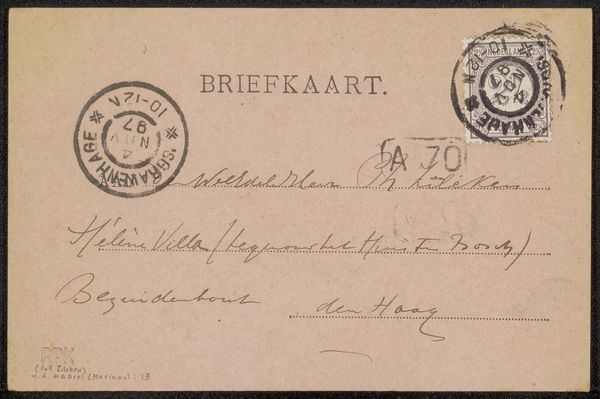 BRIEFKAART.
NEDERLAND
'SGRAVENHAGE
10-12V
4
NOV
97
'SGRAVENHAGE
10-12V
4
NOV
97
A 70
WelEdel Heer Ph Zilcken
Hélène Villa (tegenover het Huis ten Bosch)
Bezuidenhout den Haag
RPK
(coll. Zilcken)
v.d. Maarel (Marinus): 13